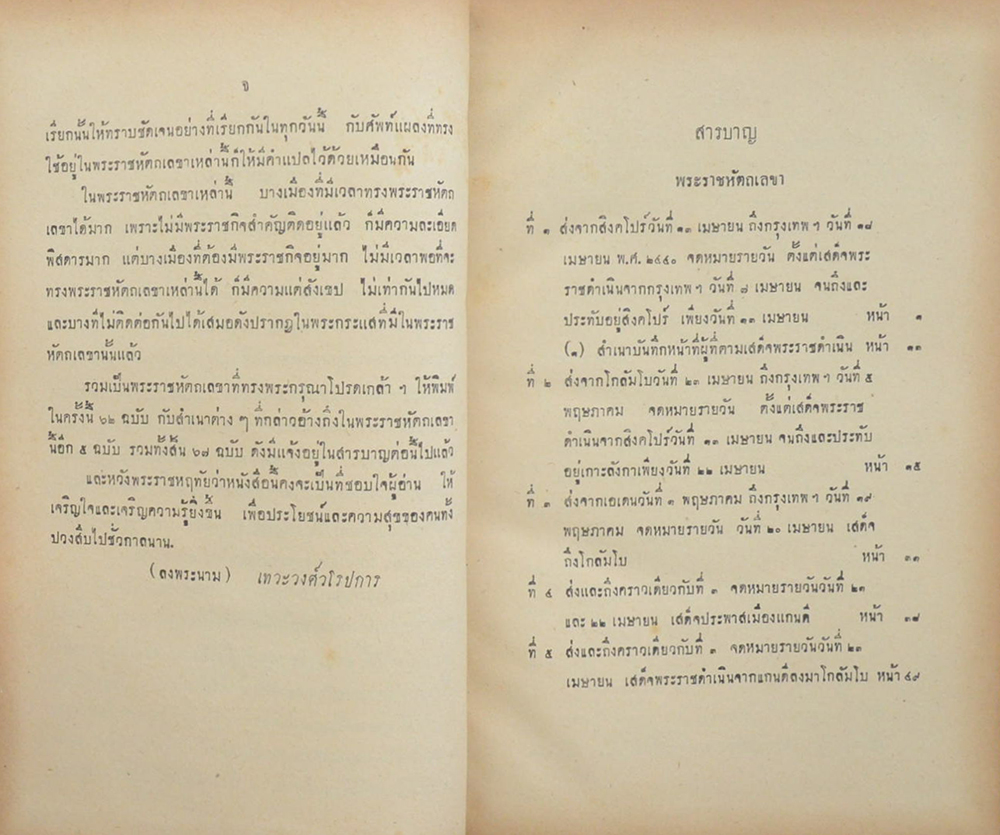 ข
เรียกนั้นให้ทราบชัดเจนอย่างที่เรียกกันในทุกวันนี้ กับศัพท์แผลงที่ทรง
ใช้อยู่ในพระราชหัตถเลขาเหล่านี้ก็ให้มีคำแปลไว้ด้วยเหมือนกัน
ในพระราชหัตถเลขาเหล่านี้ บางเมืองที่มีเวลาทรงพระราชหัตถ
เลขาได้มาก เพราะไม่มีพระราชกิจสำคัญติดอยู่แล้ว ก็มีความละเอียด
พิสดารมาก แต่บางเมืองที่ต้องมีพระราชกิจอยู่มาก ไม่มีเวลาพอที่จะ
ทรงพระราชหัตถเลขาเหล่านี้ได้ ก็มีความแต่สังเขป ไม่เท่ากันไปหมด
และบางที่ไม่ติดต่อกันไปได้เสมอดังปรากฏในพระกระแสที่มีในพระราช
หัตถเลขานั้นแล้ว
รวมเป็นพระราชหัตถเลขาที่ทรงพระกรุณาโปรดเกล้า ฯ ให้พิมพ์
ในครั้งนี้ ๖๒ ฉบับ กับสำเนาต่าง ๆ ที่กล่าวอ้างถึงในพระราชหัตถเลขา
นี้อีก ๕ ฉบับ รวมทั้งสิ้น ๖๗ ฉบับ ดังมีแจ้งอยู่ในสารบาญต่อนี้ไปแล้ว
และหวังพระราชหฤทัยว่าหนังสือนี้คงจะเป็นที่ชอบใจผู้อ่าน ให้
เจริญใจและเจริญความรู้ยิ่งขึ้น เพื่อประโยชน์และความสุขของคนทั้ง
ปวงสืบไปชั่วกาลนาน.
(ลงพระนาม) เทวะวงศ์วโรปการ
สารบาญ
พระราชหัตถเลขา
ที่ ๑ ส่งจากสิงคโปร์วันที่ ๑๓ เมษายน ถึงกรุงเทพ ฯ วันที่ ๑๘
เมษายน พ.ศ. ๒๔๔๐ จดหมายรายวัน ตั้งแต่เสด็จพระ
ราชดำเนินจากกรุงเทพ ฯ วันที่ ๗ เมษายน จนถึงและ
ประทับอยู่สิงคโปร์ เพียงวันที่ ๑๓ เมษายน หน้า ๑
(๑) สำเนาบันทึกหน้าที่ผู้ที่ตามเสด็จพระราชดำเนิน หน้า ๑๓
ที่ ๒ ส่งจากโกลัมโบวันที่ ๒๓ เมษายน ถึงกรุงเทพ ฯ วันที่ ๕
พฤษภาคม จดหมายรายวัน ตั้งแต่เสด็จพระราช
ดำเนินจากสิงคโปร์วันที่ ๑๓ เมษายน จนถึงและประทับ
อยู่เกาะลังกาเพียงวันที่ ๒๒ เมษายน หน้า ๑๕
ที่ ๓ ส่งจากเอเดนวันที่ ๑ พฤษภาคม ถึงกรุงเทพ ฯ วันที่ ๑๙
พฤษภาคม จดหมายรายวัน วันที่ ๒๐ เมษายน เสด็จ
ถึงโกลัมโบ หน้า ๓๑
ที่ ๔ ส่งและถึงคราวเดียวกับที่ ๓ จดหมายรายวันวันที่ ๒๑
และ ๒๒ เมษายน เสด็จประพาสเมืองแกนดี หน้า ๓๘
ที่ ๕ ส่งและถึงคราวเดียวกับที่ ๓ จดหมายรายวันวันที่ ๒๓
เมษายน เสด็จพระราชดำเนินจากแกนดีลงมาโกลัมโบ หน้า ๔๙